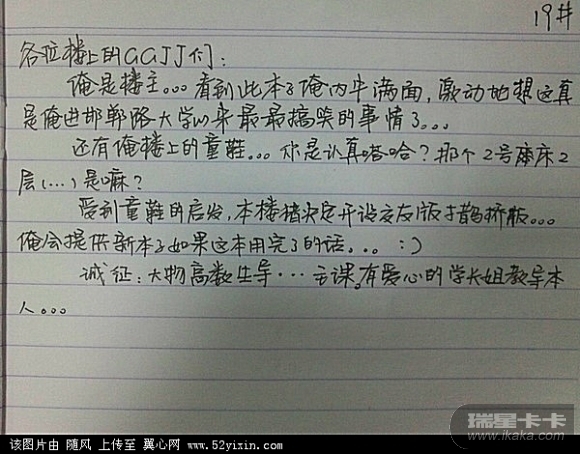 19#
各位楼上的GGJJ们：
俺是楼主。。。看到此本子俺内牛满面，激动地想这真
是俺进邯郸路大学以来最最搞笑的事情了。。。
还有俺楼上的童鞋。。。你是认真嗒哈？那个2号床2
层(...)是嘛？
受到童鞋的启发，本楼猪决定开设交友版+鹊桥板。。。
俺会提供新本子如果这本用完了的话。。。:)
诚征：大物高数生导...等课。有爱心的学长姐教导本
人。。。
瑞星卡卡
www.ikaka.com
该图片由 随风 上传至 翼心网 www.52yixin.com